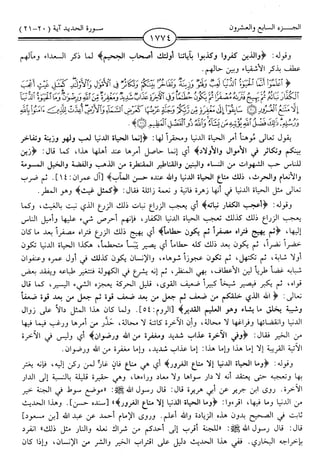 الجـــزء السابع والعشرون
١٧٧٤
سورة الحديد آية (٢٠-٢١)
وقوله: ﴿والذين كفروا وكذبوا بآياتنا أولئك أصحاب الجحيم﴾ لما ذكر السعداء ومآلهم
عطف بذكر الأشقياء وبين حالهم.
يقول تعالى مُوهناً أمر الحياة الدنيا ومحقراً لها: ﴿إنما الحياة الدنيا لعب ولهو وزينة وتفاخر
بينكم وتكاثر في الأموال والأولاد﴾ أي إنما حاصل أمرها عند أهلها هذا، كما قال: ﴿زين
للناس حب الشهوات من النساء والبنين والقناطير المقنطرة من الذهب والفضة والخيل المسومة
والأنعام والحرث، ذلك متاع الحياة الدنيا والله عنده حسن المآب﴾ [آل عمران: ١٤]. ثم ضرب
تعالى مثل الحياة الدنيا في أنها زهرة فانية و نعمة زائلة فقال: ﴿كمثل غيث﴾ وهو المطر.
وقوله: ﴿أعجب الكفار نباته﴾ أي يعجب الزراع نبات ذلك الزرع الذي نبت بالغيث، وكما
يعجب الزراع ذلك كذلك تعجب الحياة الدنيا الكفار، فإنهم أحرص شيء عليها وأميل الناس
إليها، ﴿ثم يهيج فتراه مصفراً ثم يكون حطاماً﴾ أي يهيج ذلك الزرع فتراه مصفراً بعد ما كان
خضراً نضراً، ثم يكون بعد ذلك كله حطاماً أي يصير يَبَساً متحطماً، هكذا الحياة الدنيا تكون
أولا شابة، ثم تكتهل، ثم تكون عجوزاً شوهاء، والإنسان يكون كذلك في أول عمره وعنفوان
شبابه غضاً طرياً لين الأعطاف، بهي المنظر، ثم إنه يشرع في الكهولة فتتغير طباعه ويفقد بعض
قواه، ثم يكبر فيصير شيخاً كبيراً ضعيف القوى، قليل الحركة يعجزه الشيء اليسير، كما قال
تعالى: ﴿الله الذي خلقكم من ضعف ثم جعل من بعد ضعف قوة ثم جعل من بعد قوة ضعفاً
وشيبة يخلق ما يشاء وهو العليم القدير﴾ [الروم: ٥٤]. ولما كان هذا المثل دالاً على زوال
الدنيا وانقضائها وفراغها لا محالة، وأن الآخرة كائنة لا محالة، حذّر من أمرها ورغب فيما فيها
من الخير فقال: ﴿وفي الآخرة عذاب شديد ومغفرة من الله ورضوان﴾ أي وليس في الآخرة
الآتية القريبة إلا إما هذا وإما هذا: إما عذاب شديد، وإما مغفرة من الله ورضوان.
وقوله: ﴿وما الحياة الدنيا إلا متاع الغرور﴾ أي هي متاع فانٍ غارٌّ لمن ركن إليه، فإنه يغتر
بها وتعجبه حتى يعتقد أنه لا دار سواها ولا معاد وراءها، وهي حقيرة قليلة بالنسبة إلى الدار
الآخرة. روى ابن جرير عن أبي هريرة قال: قال رسول الله ﷺ: «موضع سوط في الجنة خير
من الدنيا وما فيها، اقرءوا: ﴿وما الحياة الدنيا إلا متاع الغرور﴾» [سنده حسن]. وهذا الحديث
ثابت في الصحيح بدون هذه الزيادة والله أعلم. وروى الإمام أحمد عن عبد الله [بن مسعود]
قال: قال رسول الله ﷺ: «للجنة أقرب إلى أحدكم من شراك نعله والنار مثل ذلك» انفرد
بإخراجه البخاري. ففي هذا الحديث دليل على اقتراب الخير والشر من الإنسان، وإذا كان